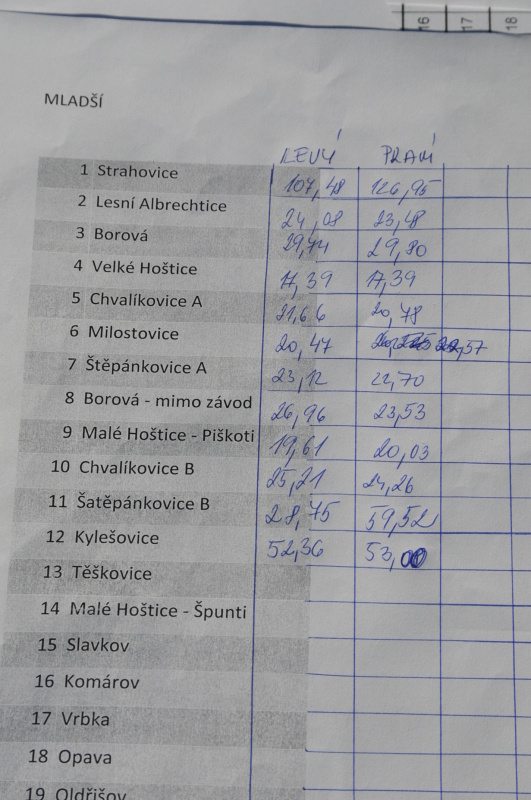 16 17 18
MLADŠÍ
LEVÝ PRAVÍ
1 Strahovice 107,48 126,95
2 Lesní Albrechtice 24,08 23,48
3 Borová 29,74 29,80
4 Velké Hoštice 17,39 17,39
5 Chvalíkovice A 21,66 20,78
6 Milostovice 20,47 22,57
7 Štěpánkovice A 23,12 22,70
8 Borová - mimo závod 26,96 23,53
9 Malé Hoštice - Piškoti 19,61 20,03
10 Chvalíkovice B 25,21 24,26
11 Šatěpánkovice B 28,75 59,52
12 Kylešovice 52,36 53,00
13 Těškovice
14 Malé Hoštice - Špunti
15 Slavkov
16 Komárov
17 Vrbka
18 Opava
19 Oldřišov